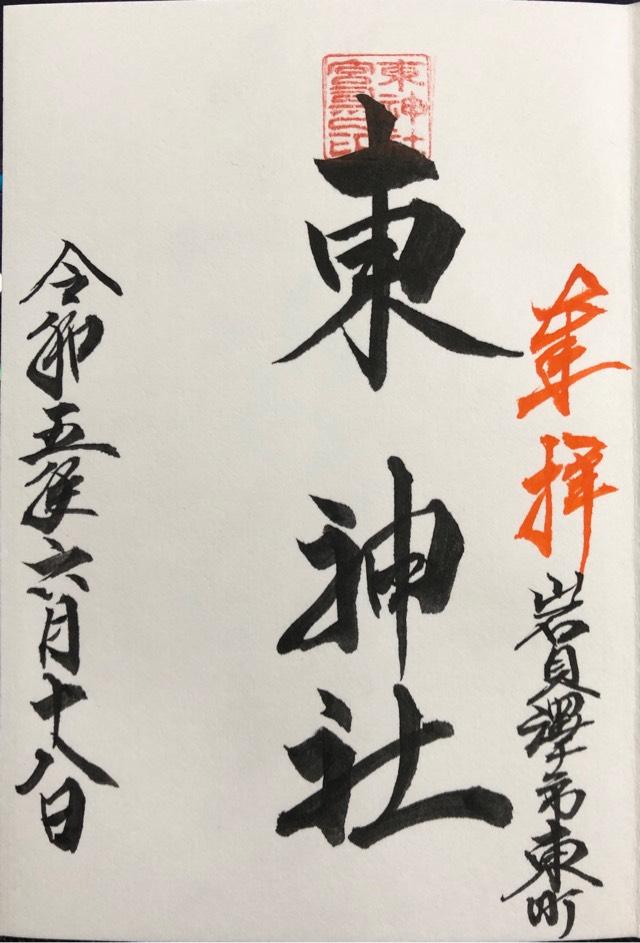 奉拝
岩見澤市東町
東神社
東神社
宮司之印
令和五年六月十八日